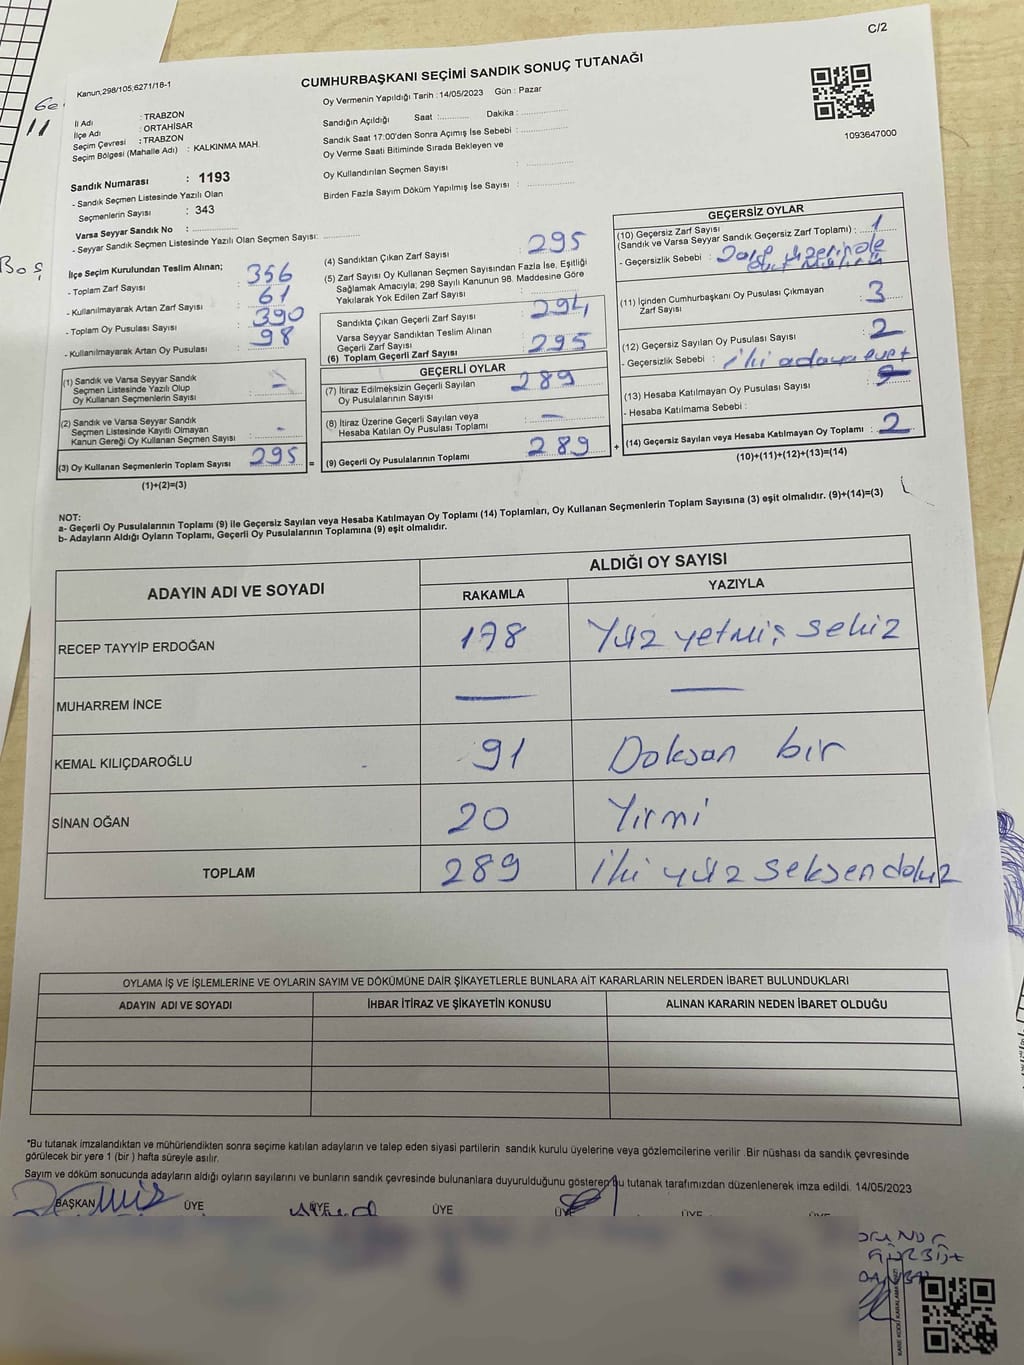 C/2
Kanun,298/105,6271/18-1
CUMHURBAŞKANI SEÇİMİ SANDIK SONUÇ TUTANAĞI
Oy Vermenin Yapıldığı Tarih : 14/05/2023 Gün : Pazar
İl Adı : TRABZON
İlçe Adı : ORTAHİSAR
Seçim Çevresi : TRABZON
Seçim Bölgesi (Mahalle Adı) : KALKINMA MAH.
Sandığın Açıldığı Saat :.......... Dakika :..........
Sandık Saat 17:00'den Sonra Açımış İse Sebebi :
Oy Verme Saati Bitiminde Sırada Bekleyen ve
Oy Kullandırılan Seçmen Sayısı :
Birden Fazla Sayım Döküm Yapılmış İse Sayısı :
1093647000
Sandık Numarası : 1193
- Sandık Seçmen Listesinde Yazılı Olan
Seçmenlerin Sayısı : 343
Varsa Seyyar Sandık No :
- Seyyar Sandık Seçmen Listesinde Yazılı Olan Seçmen Sayısı:
İlçe Seçim Kurulundan Teslim Alınan;
- Toplam Zarf Sayısı : 356
- Kullanılmayarak Artan Zarf Sayısı : 61
- Toplam Oy Pusulası Sayısı : 390
- Kullanılmayarak Artan Oy Pusulası : 98
(1) Sandık ve Varsa Seyyar Sandık
Seçmen Listesinde Yazılı Olup
Oy Kullanan Seçmenlerin Sayısı : -
(2) Sandık ve Varsa Seyyar Sandık
Seçmen Listesinde Kayıtlı Olmayan
Kanun Gereği Oy Kullanan Seçmen Sayısı : -
(3) Oy Kullanan Seçmenlerin Toplam Sayısı : 295 =
(1)+(2)=(3)
(4) Sandıktan Çıkan Zarf Sayısı : 295
(5) Zarf Sayısı Oy Kullanan Seçmen Sayısından Fazla İse, Eşitliği
Sağlamak Amacıyla; 298 Sayılı Kanunun 98. Maddesine Göre
Yakılarak Yok Edilen Zarf Sayısı :
Sandıkta Çıkan Geçerli Zarf Sayısı : 294
Varsa Seyyar Sandıktan Teslim Alınan
Geçerli Zarf Sayısı
(6) Toplam Geçerli Zarf Sayısı : 295
GEÇERLİ OYLAR
(7) İtiraz Edilmeksizin Geçerli Sayılan
Oy Pusulalarının Sayısı : 289
(8) İtiraz Üzerine Geçerli Sayılan veya
Hesaba Katılan Oy Pusulası Toplamı : —
(9) Geçerli Oy Pusulalarının Toplamı : 289 +
GEÇERSİZ OYLAR
(10) Geçersiz Zarf Sayısı
(Sandık ve Varsa Seyyar Sandık Geçersiz Zarf Toplamı) : 1
- Geçersizlik Sebebi : üzerinde
(11) İçinden Cumhurbaşkanı Oy Pusulası Çıkmayan
Zarf Sayısı : 3
(12) Geçersiz Sayılan Oy Pusulası Sayısı : 2
- Geçersizlik Sebebi : iki adaya evet
(13) Hesaba Katılmayan Oy Pusulası Sayısı :
- Hesaba Katılmama Sebebi :
(14) Geçersiz Sayılan veya Hesaba Katılmayan Oy Toplamı : 2
(10)+(11)+(12)+(13)=(14)
NOT:
a- Geçerli Oy Pusulalarının Toplamı (9) ile Geçersiz Sayılan veya Hesaba Katılmayan Oy Toplamı (14) Toplamları, Oy Kullanan Seçmenlerin Toplam Sayısına (3) eşit olmalıdır. (9)+(14)=(3)
b- Adayların Aldığı Oyların Toplamı, Geçerli Oy Pusulalarının Toplamına (9) eşit olmalıdır.
ADAYIN ADI VE SOYADI ALDIĞI OY SAYISI
RAKAMLA YAZIYLA
RECEP TAYYİP ERDOĞAN 178 Yüz yetmiş sekiz
MUHARREM İNCE — —
KEMAL KILIÇDAROĞLU 91 Doksan bir
SİNAN OĞAN 20 Yirmi
TOPLAM 289 iki yüz seksen dokuz
OYLAMA İŞ VE İŞLEMLERİNE VE OYLARIN SAYIM VE DÖKÜMÜNE DAİR ŞİKAYETLERLE BUNLARA AİT KARARLARIN NELERDEN İBARET BULUNDUKLARI
ADAYIN ADI VE SOYADI İHBAR İTİRAZ VE ŞİKAYETİN KONUSU ALINAN KARARIN NEDEN İBARET OLDUĞU
*Bu tutanak imzalandıktan ve mühürlendikten sonra seçime katılan adayların ve talep eden siyasi partilerin sandık kurulu üyelerine veya gözlemcilerine verilir .Bir nüshası da sandık çevresinde
görülecek bir yere 1 (bir ) hafta süreyle asılır.
Sayım ve döküm sonucunda adayların aldığı oyların sayılarını ve bunların sandık çevresinde bulunanlara duyurulduğunu gösteren bu tutanak tarafımızdan düzenlenerek imza edildi. 14/05/2023
BAŞKAN ÜYE ÜYE ÜYE ÜYE ÜYE ÜYE